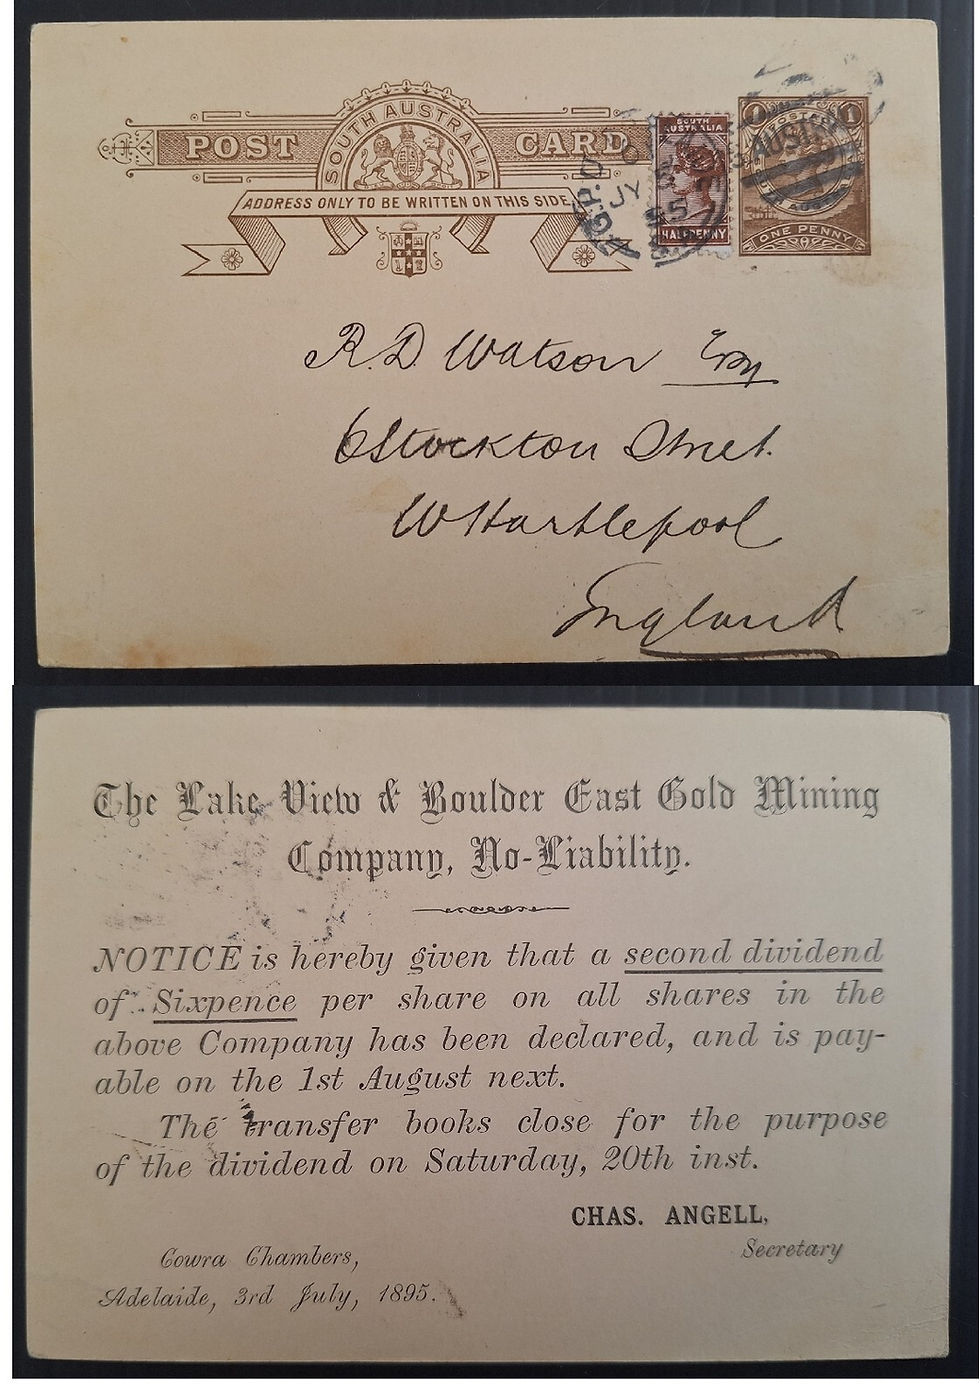 SOUTH AUSTRALIA
POST CARD
ADDRESS ONLY TO BE WRITTEN ON THIS SIDE
SOUTH AUSTRALIA
HALFPENNY
1 POSTAGE 1
ONE PENNY
G.P.O
JY 5
95
S.AUSTRA
R.D. Watson Esq
6 Stockton Street.
W Hartlepool
England
The Lake View & Boulder East Gold Mining
Company, No-Liability.
NOTICE is hereby given that a second dividend
of Sixpence per share on all shares in the
above Company has been declared, and is pay-
able on the 1st August next.
The transfer books close for the purpose
of the dividend on Saturday, 20th inst.
CHAS. ANGELL,
Secretary
Cowra Chambers,
Adelaide, 3rd July, 1895.